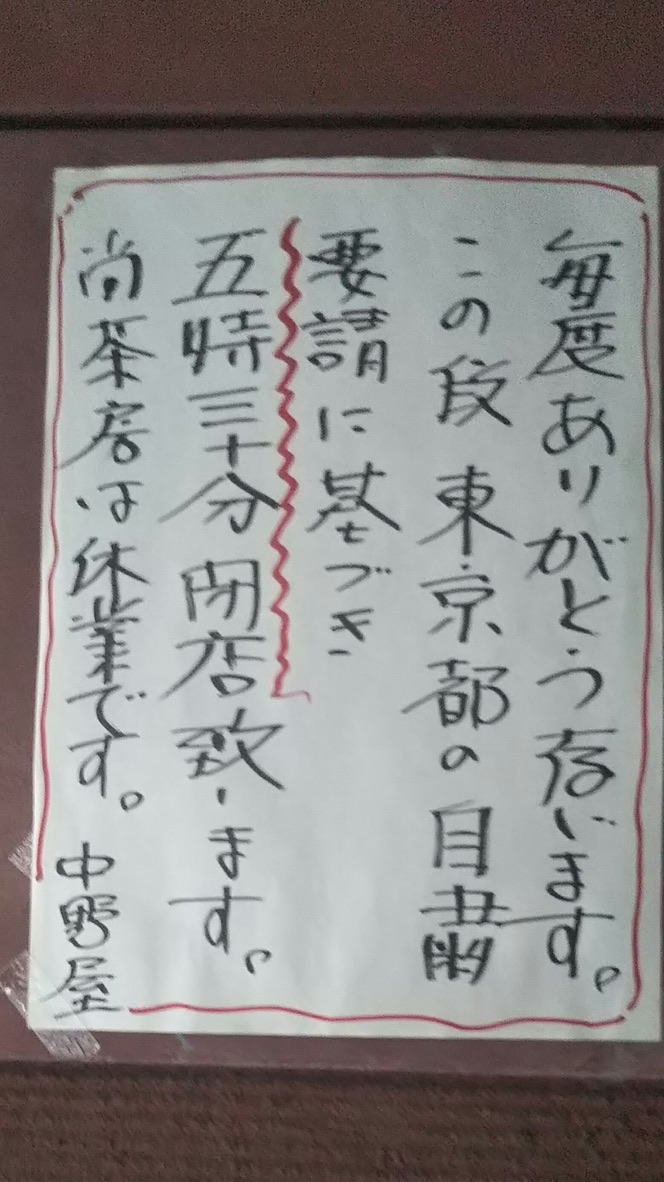 毎度ありがとう存じます。
この段東京都の自粛
要請に基づき
五時三十分閉店致します。
尚茶房は休業です。
中野屋